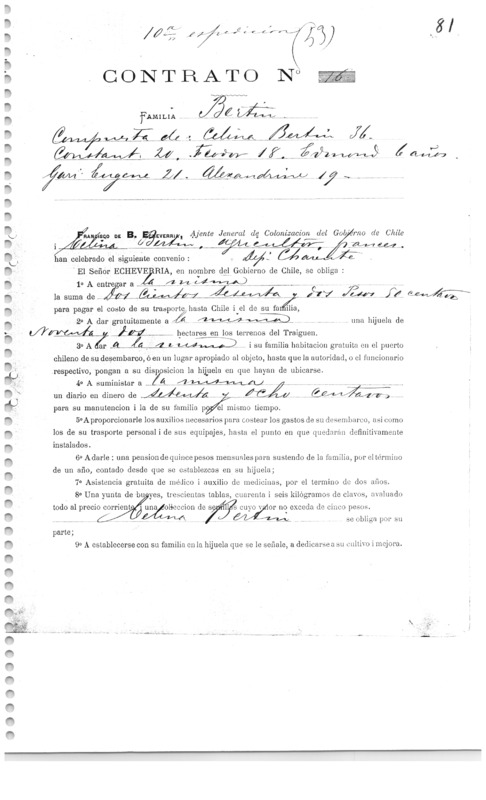 10ª espedicion (59)
81
CONTRATO Nº 16
FAMILIA Bertin
Compuesta de: Celina Bertin 36.
Constant. 20. Feodor 18. Edmond 6 años.
Gari Eugene 21. Alexandrine 19 -
FRANCISCO DE B. ECHEVERRIA, Ajente Jeneral de Colonizacion del Gobierno de Chile
i Celina Bertin, agricultor, frances.
han celebrado el siguiente convenio : Dep. Charente
El Señor ECHEVERRIA, en nombre del Gobierno de Chile, se obliga :
1º A entregar a la misma
la suma de Dos Cientos Sesenta y dos Pesos 80 centavos
para pagar el costo de su trasporte hasta Chile i el de su familia,
2º A dar gratuitamente a la misma una hijuela de
Noventa y dos hectares en los terrenos del Traiguen.
3º A dar a la misma i su familia habitacion gratuita en el puerto
chileno de su desembarco, ó en un lugar apropiado al objeto, hasta que la autoridad, o el funcionario
respectivo, pongan a su disposicion la hijuela en que hayan de ubicarse.
4º A suministar a la misma
un diario en dinero de setenta y ocho centavos
para su manutencion i la de su familia por el mismo tiempo.
5º A proporcionarle los auxilios necesarios para costear los gastos de su desembarco, asi como
los de su trasporte personal i de sus equipajes, hasta el punto en que quedarán definitivamente
instalados.
6º A darle : una pension de quince pesos mensuales para sustendo de la familia, por el término
de un año, contado desde que se establezcas en su hijuela ;
7º Asistencia gratuita de médico i auxilio de medicinas, por el termino de dos años.
8º Una yunta de bueyes, trescientas tablas, cuarenta i seis kilógramos de clavos, avaluado
todo al precio corriente, i una coleccion de semillas cuyo valor no exceda de cinco pesos.
Celina Bertin se obliga por su
parte ;
9º A establecerse con su familia en la hijuela que se le señale, a dedicarse a su cultivo i mejora.